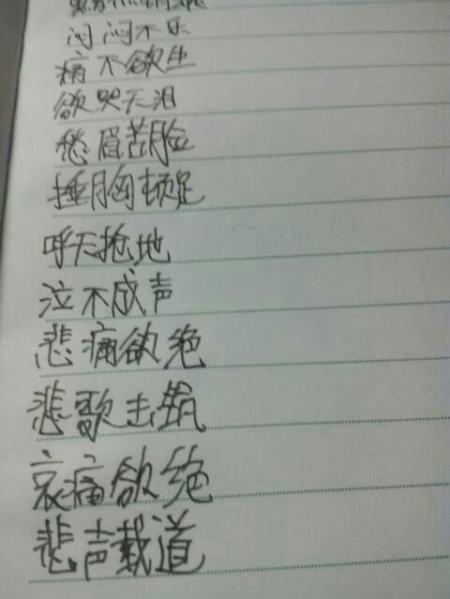 闷闷不乐
痛不欲生
欲哭无泪
愁眉苦脸
捶胸顿足
呼天抢地
泣不成声
悲痛欲绝
悲歌击筑
哀痛欲绝
悲声载道